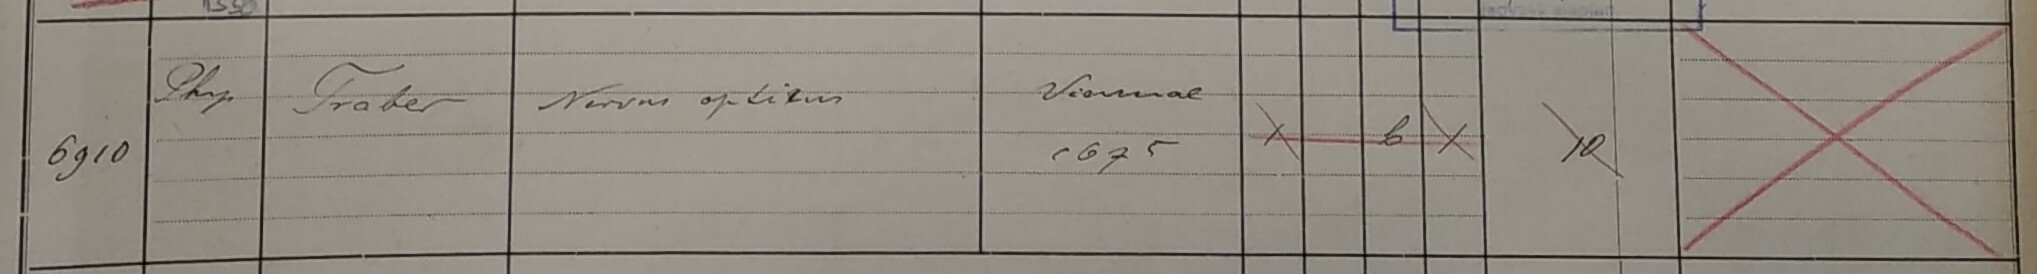 1550
6910 Phys Traber Nervus opticus Viennae
1675
X 6 X 10